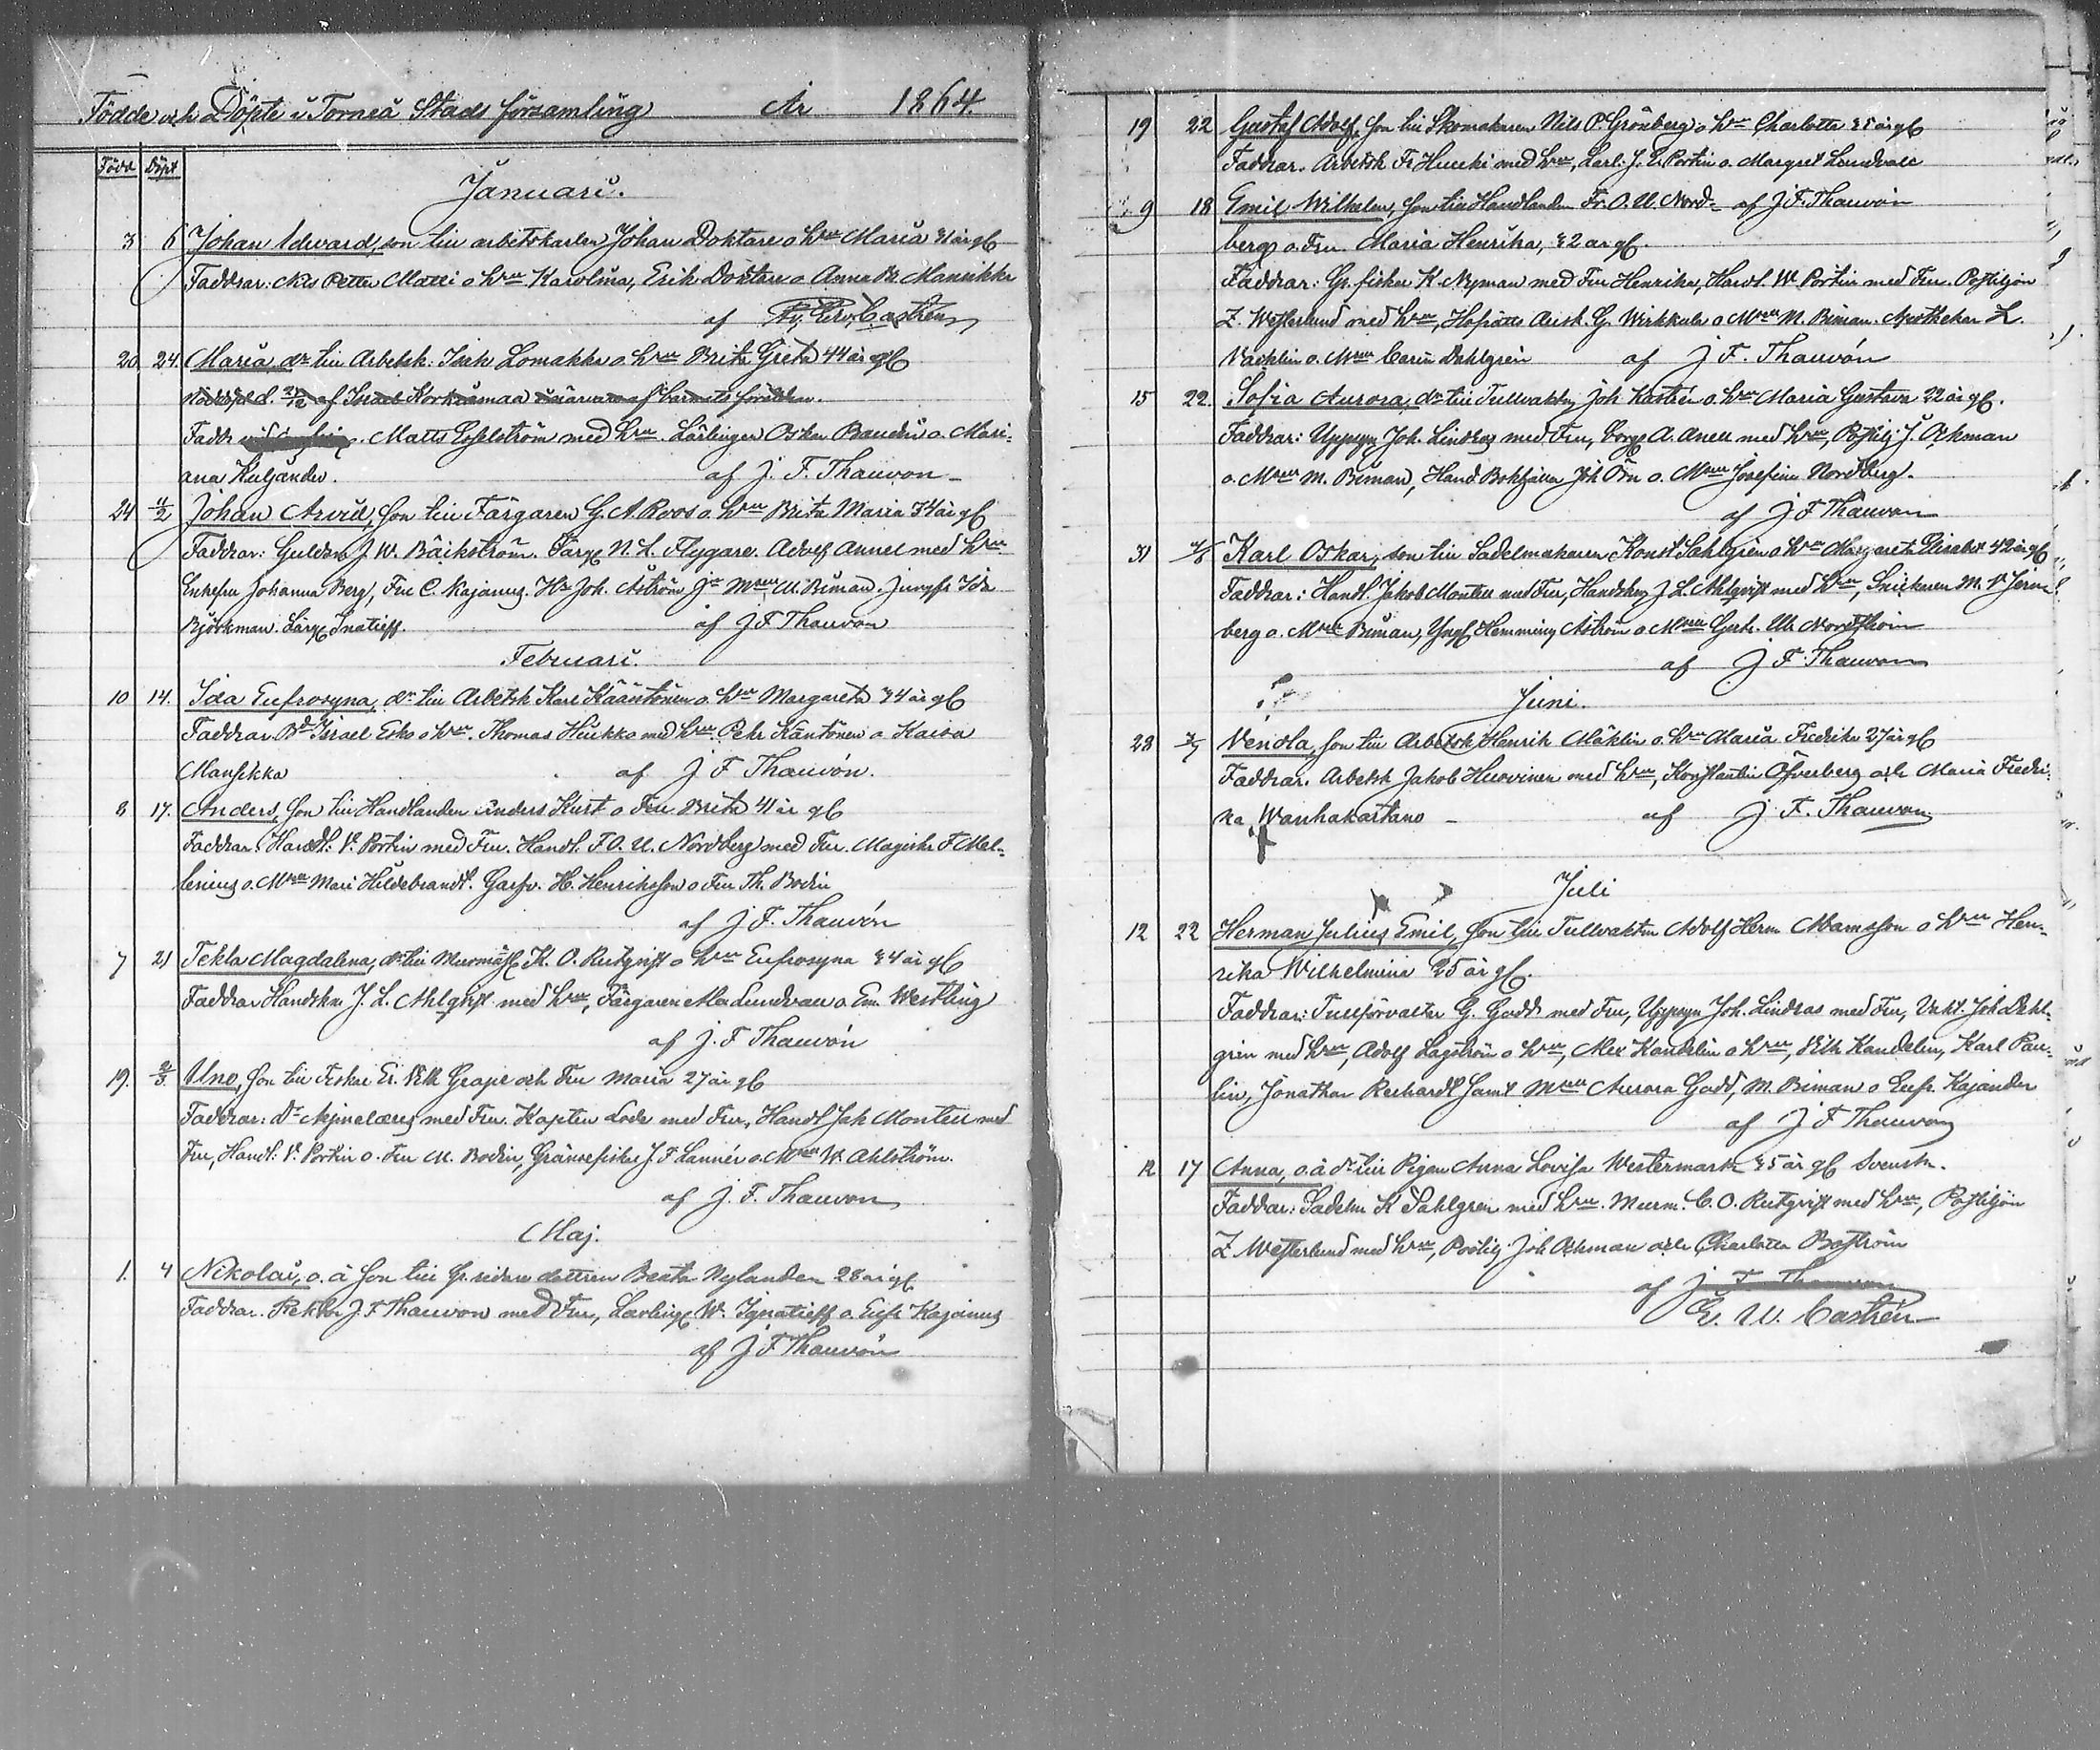 Födde och Döpte i Torneå Stads församling År 1864.
Född Döpt
Januari.
3 6 Johan Edward, son till arbetskarlen Johan Doktare o hru Maria 31 år gl
Faddrar: Nils Petter Matti o hru Karolina, Erik Doktare o Anna Br. Mansikka
af Castrén
20 24. Maria dr till Arbetsk: Isak Lomakka o hru Brita Greta 44 år gl
af Korkiamaa af barnets föräldrar.
Faddr Matts Esselström med hru Lärlingen Oskar Baudin o. Mari-
ana Kuljander. af J. F. Thauvon
24 11/2 Johan Arvid, son till Färgaren G. A. Roos o. hru Brita Maria 34 år gl
Faddrar: Guldsm J. W. Bäckström. Färgg N. L. Flygare. Adolf Annel med hru
Enkefru Johanna Berg, Fru C. Kajanus. Hr Joh. Åström Jr Mmll M. Biman. Jungfr Ida
Björkman. Lärg Inatieff. af J F Thauvon
Februari.
10 14. Ida Eufrosyna, dr till Arbetsk Karl Kääntönen o. hru Margareta 34 år gl
Faddrar Bd Israel Esko o hru. Thomas Hiukka med hru Pehr Käntönen o Kaisa
Mansikka af J F Thauvón.
8 17. Anders, son till Handlanden Anders Kurt o Fru Brita 41 år gl
Faddrar: Handl: V. Portin med Fru. Handl. F. O. U. Nordberg med Fru. Magister F Mel-
lenius o. Mmll Mari Hildebrandt. Garfv. H. Henriksson o Fru Th. Bodin
af J F. Thauvón
7 21 Tekla Magdalena, dr till Murmäst K. O. Rutqvist o hru Eufrosyna 34 år gl
Faddrar Handskm J. L. Ahlqvist med hru, Färgaren Alex Lundvall o Em. Westling
af J. F Thauvón
19. 2/3. Uno, son till Fiskal Er. Vilh Grape och Fru Maria 27 år gl
Faddrar: Dr Nymelæus med Fru. Kapten Lode med Fru, Handl Jak Montell med
Fru, Handl: V. Portin o. Fru M. Bodin, Gränsefiskal J. F Lannér o. Mmll W. Ahlström.
af J. F. Thauvon
Maj.
1. 4 Nikolai, o. ä son till Gr.ridare dottren Beata Nylander 28 år gl
Faddrar. Rektor J. F Thauvon med Fru, Lärling W. Ignatieff o. Eufr Kajanus
af J F Thauvón
19 22 Gustaf Adolf, son till Skomakaren Nils P. Grönberg o hru Charlotta 35 år gl
Faddrar. Arbetsk Fr Hueki med hru, Lärl. J. E. Portin o. Margret Lundvall
9 18 Emil Wilhelm, son till Handlanden Fr. O. U. Nord- af J F. Thauvón
berg o. Fru Maria Henrika, 32 år gl.
Faddrar: Gr. fiskal K. Nyman med Fru Henrika, Handl. W. Portin med Fru. Postiljon
Z. Westerlund med hru, Hofrätts Ausk. G. Wirkkula o Mmll M. Biman. Apothekar L.
Wacklin o. Mmll Carin Dahlgren af J F. Thauvón
15 22. Sofia Aurora, dr till Tullvaktm Joh. Kastén o. hru Maria Gustava 22 år gl.
Faddrar: Uppsyn Joh. Lindros med Fru, Borgr A. Anell med hru, Postilj J. Åkman
o. Mmll M. Biman, Hand Bokhålla Joh Örn o. Mmll Josefina Nordberg.
af J F Thauvon
31 Karl Oskar, son till Sadelmakaren Konst Sahlgren o. hru Margareta Elisabet 42 år gl
Faddrar: Handl. Jakob Montell med Fru, Handskm J. L. Ahlqvist med hru, Snickaren M. V. Jern-
berg o. Mmll Biman, Yngl Hemming Åström o Mmll Gertr. Ul. Nordström
af J F. Thauvon
Juni.
28 3/7 Venola, son till Arbetsk Henrik Mäklin o. hru Maria Fredrika 27 år gl
Faddrar. Arbetsk Jakob Huovinen med hru, Konstantin Öfverberg och Maria Fredri-
ka Wanhakartano af J. F. Thauvon
Juli
12 22 Herman Julius Emil, son till Tullvaktm Adolf Herm Adamsson o hru Hen-
rika Wilhelmina 25 år gl.
Faddrar: Tullförvalter G. Gadd med Fru, Uppsyn Joh. Lindros med Fru, Vakt. Joh Dahl-
gren med hru, Adolf Lagström o hru, Alex Kandelin o hru, Vilh Kandelin, Karl Pau-
lin, Jonathan Richardt samt Mmll Aurora Gadd, M. Biman o Eufr. Kajander
af J F Thauvon
12 17 Anna, o. ä dr till Pigan Anna Lovisa Westermark 35 år gl Svensk.
Faddrar: Sadelm K Sahlgren med hru. Murm. C. O. Rutqvist med hru, Postiljon
Z Westerlund med hru, Postilj. Joh Åkman och Charlotta Boström
af J F Thauvon
E. W. Castrén